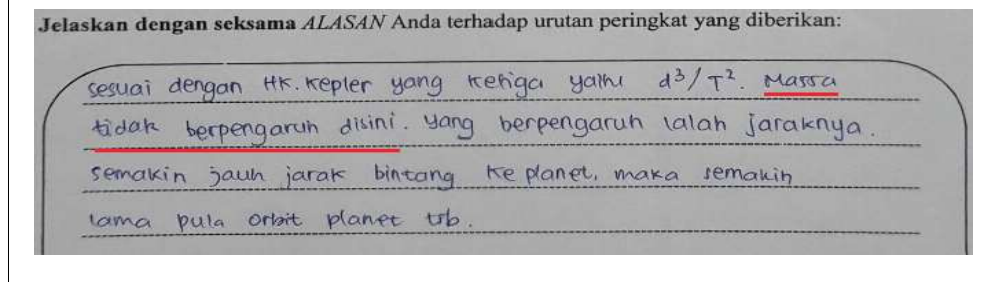 Jelaskan dengan seksama ALASAN Anda terhadap urutan peringkat yang diberikan:
sesuai dengan HK. Kepler yang ketiga yaitu d³/T². Massa
tidak berpengaruh disini. Yang berpengaruh ialah jaraknya.
semakin jauh jarak bintang ke planet, maka semakin
lama pula orbit planet tsb.